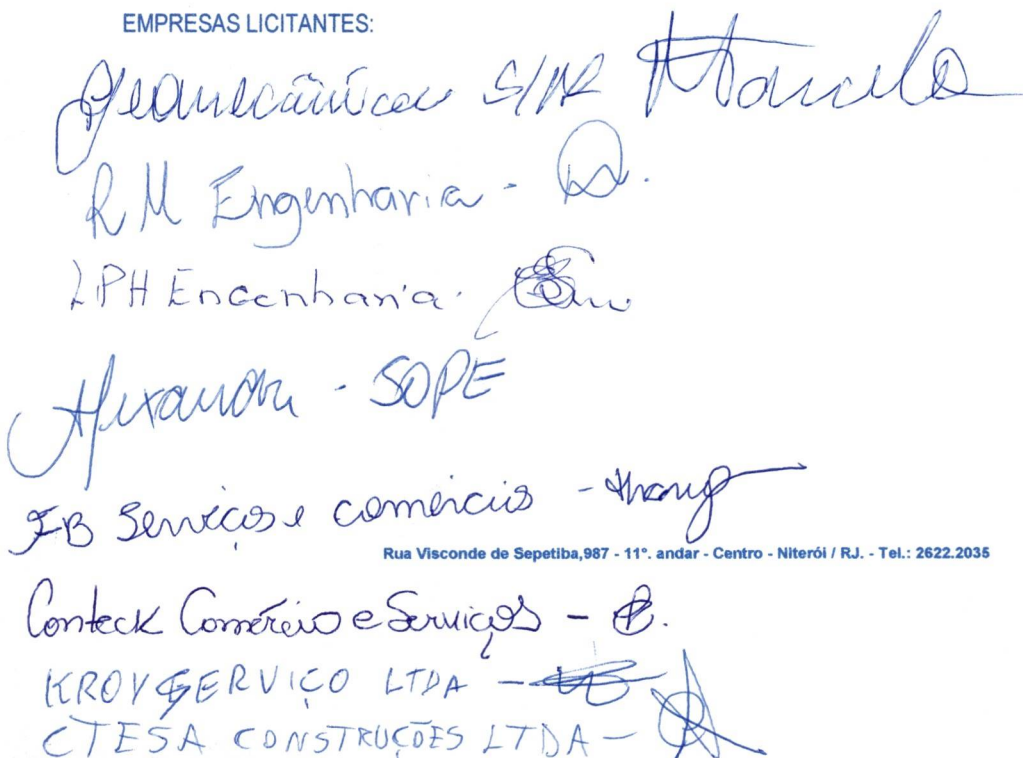 EMPRESAS LICITANTES:
Geomecânica S/A Marcelo
RM Engenharia -
LPH Engenharia -
Alexandre - SOPE
FB Serviços e comércio -
Rua Visconde de Sepetiba,987 - 11º. andar - Centro - Niterói / RJ. - Tel.: 2622.2035
Conteck Comércio e Serviços -
KROY SERVIÇO LTDA -
CTESA CONSTRUÇÕES LTDA -